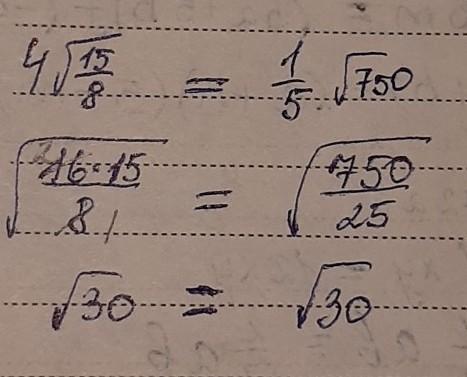 4√(15/8) = 1/5 √750
√(16·15/8) = √(750/25)
√30 = √30